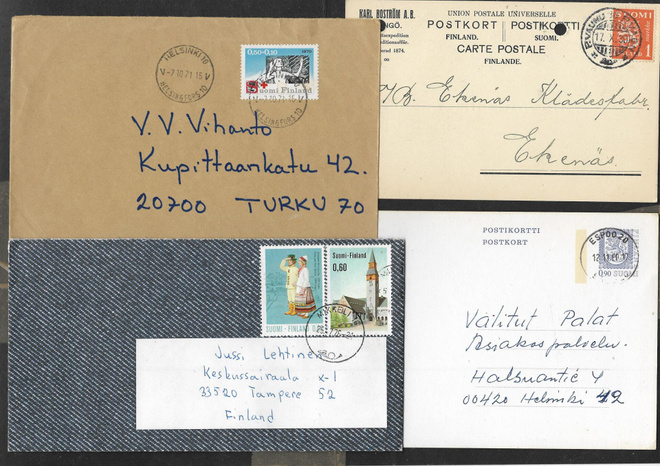 HELSINKI 10
-7.10.71.15
HELSINGFORS 10
0,50+0,10
1970
Suomi Finland
V. V. Vihanto
Kupittaankatu 42.
20700 TURKU 70
KARL BOSTRÖM A.B.
UNION POSTALE UNIVERSELLE
POSTKORT POSTIKORTTI
FINLAND. SUOMI.
CARTE POSTALE
FINLANDE.
1874.
SUOMI
FINLAND
1
17.X.
A/B. Ekenäs Klädesfabr.
Ekenäs.
SUOMI - FINLAND
Suomi-Finland
0,60
MIKKELI
Jussi Lehtinen
Keskussairaala x-1
33520 Tampere 52
Finland
POSTIKORTTI
POSTKORT
ESPOO 20
12.11.80-17
0,90 SUOMI
Välitut Palat
Asiakaspalvelu.
Halsuantie 4
00420 Helsinki 42